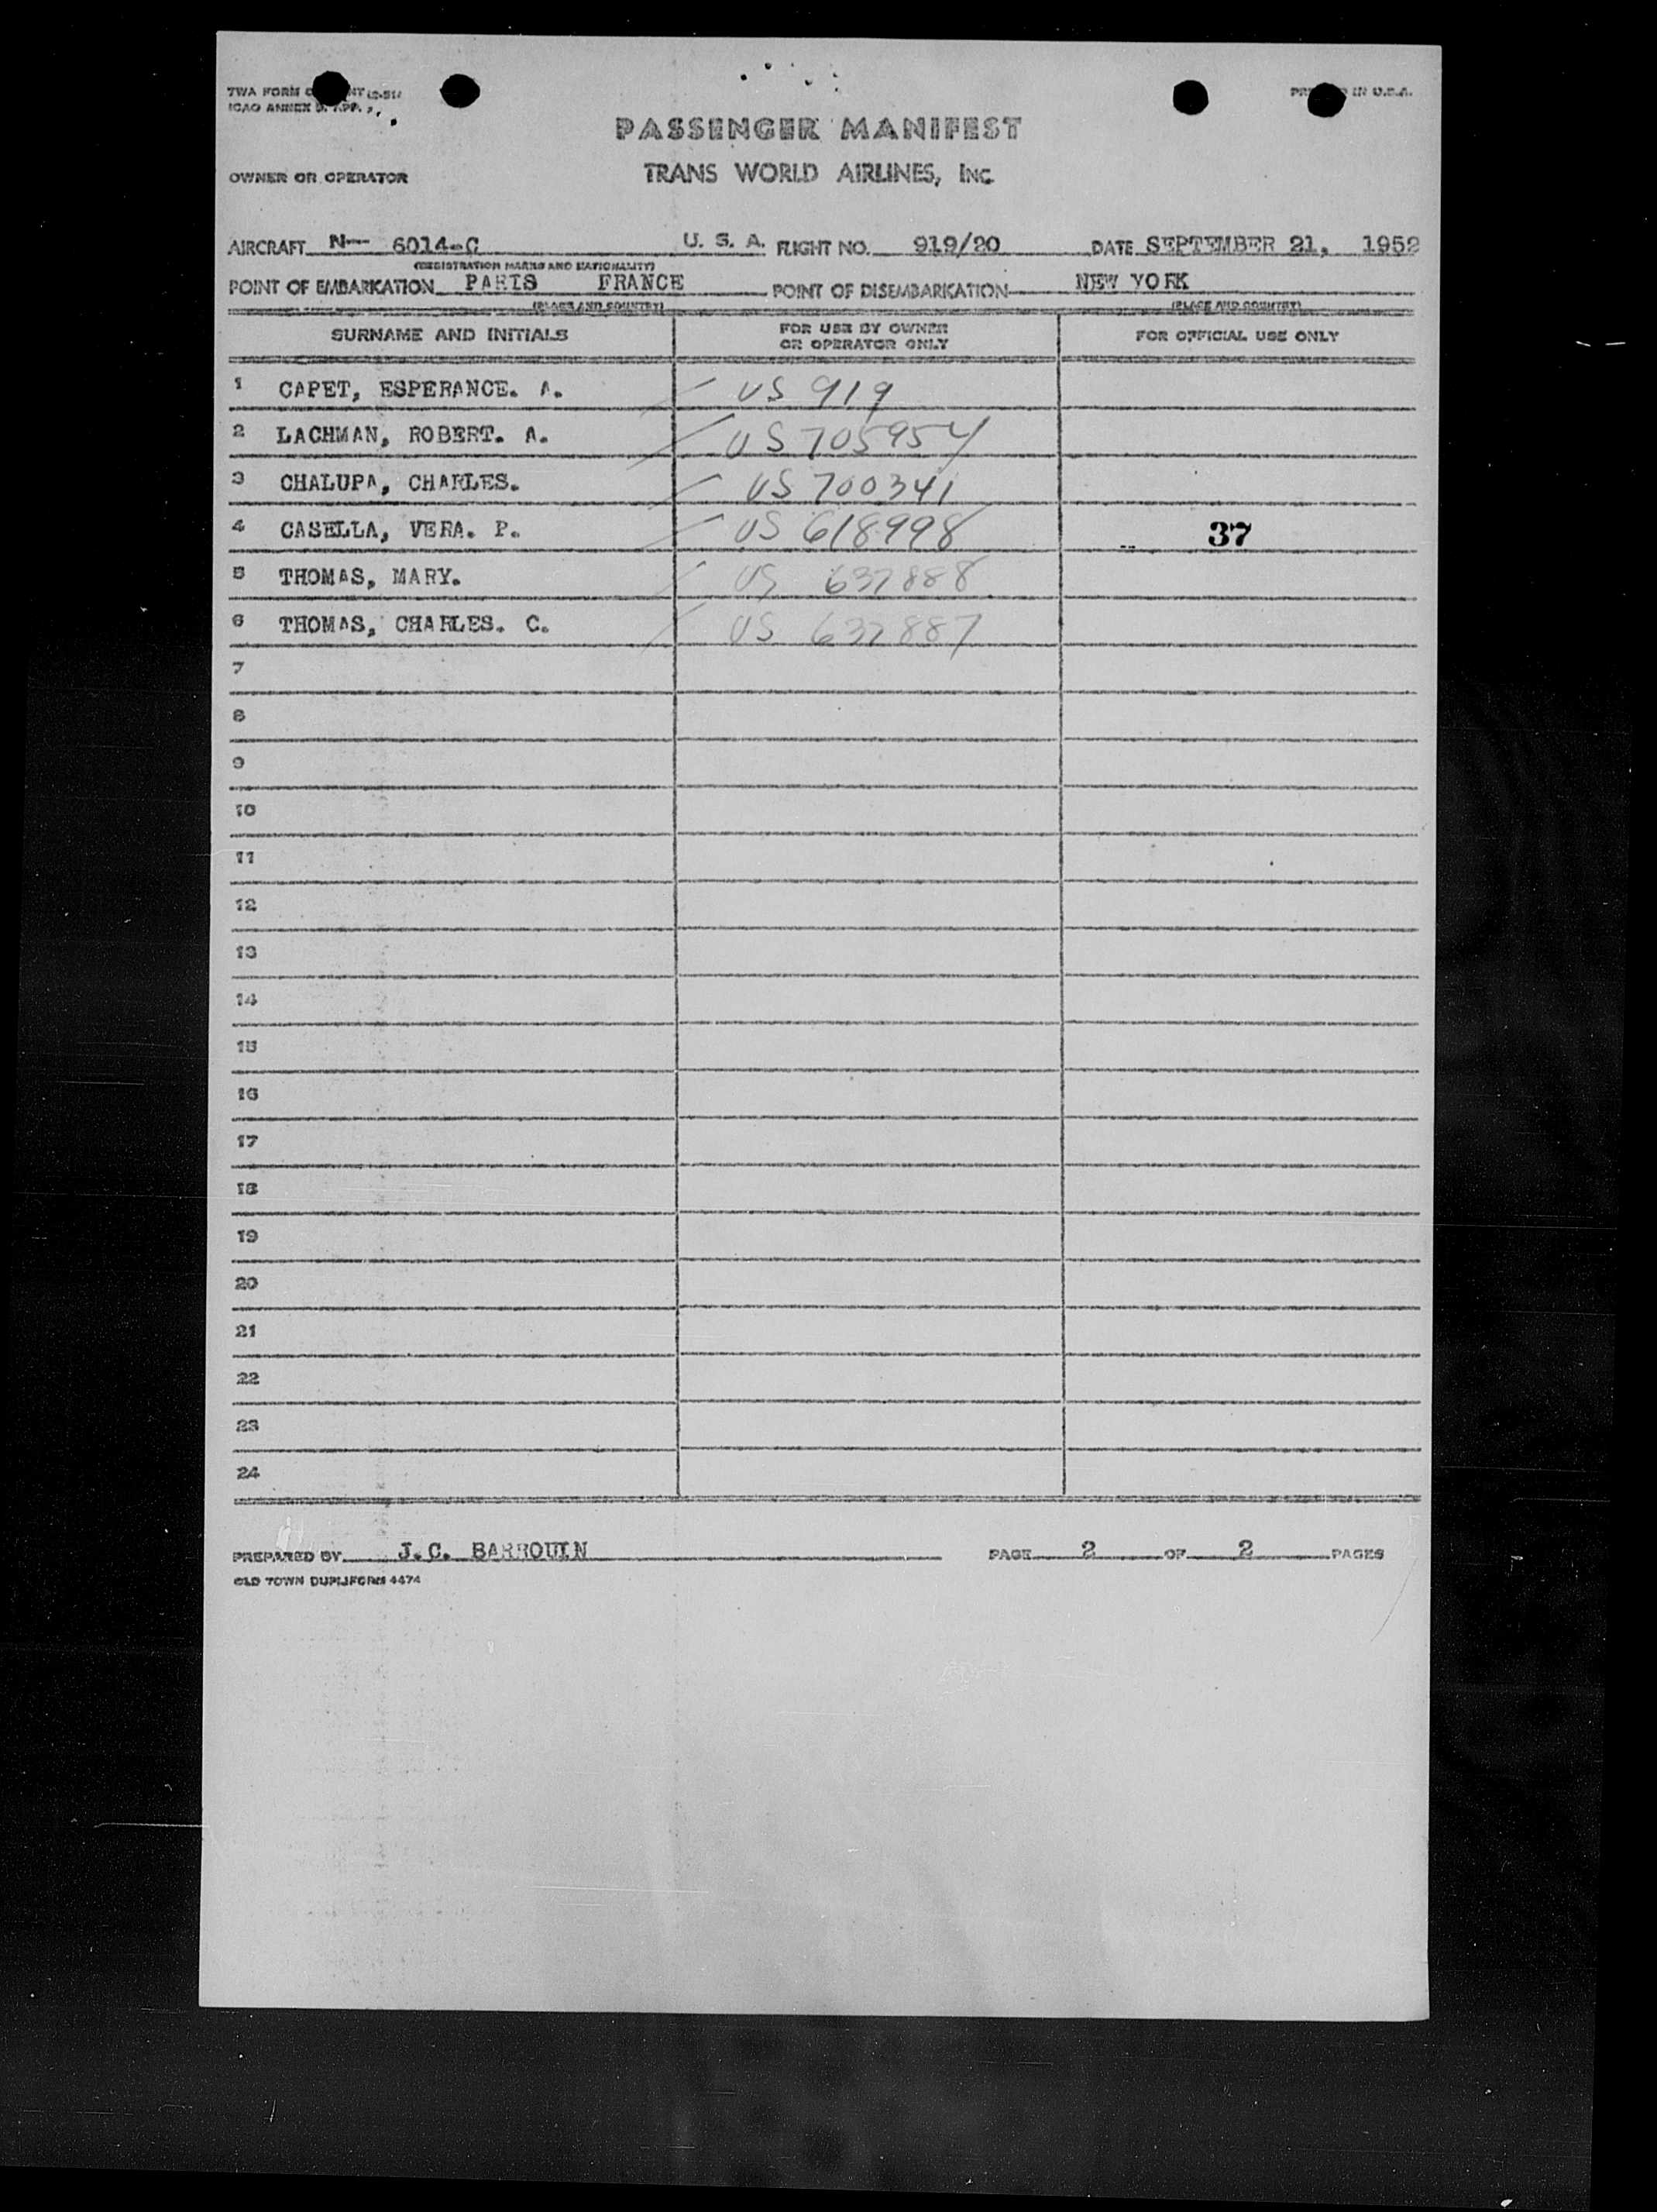 TWA FORM
ICAO ANNEX
PASSENGER MANIFEST
OWNER OR OPERATOR TRANS WORLD AIRLINES, INC.
AIRCRAFT N-- 6014-C U. S. A. FLIGHT NO. 919/20 DATE SEPTEMBER 21, 1952
(REGISTRATION MARKS AND NATIONALITY)
POINT OF EMBARKATION PARIS FRANCE POINT OF DISEMBARKATION NEW YORK
(PLACE AND COUNTRY) (PLACE AND COUNTRY)
SURNAME AND INITIALS FOR USE BY OWNER OR OPERATOR ONLY FOR OFFICIAL USE ONLY
1 CAPET, ESPERANCE. A. US 919
2 LACHMAN, ROBERT. A. US 705954
3 CHALUPA, CHARLES. US 700341
4 CASELLA, VERA. P. US 618998 37
5 THOMAS, MARY. US 637888
6 THOMAS, CHARLES. C. US 637887
7
8
9
10
11
12
13
14
15
16
17
18
19
20
21
22
23
24
PREPARED BY J.C. BARROUIN PAGE 2 OF 2 PAGES
OLD TOWN DUPLIFORM 4474